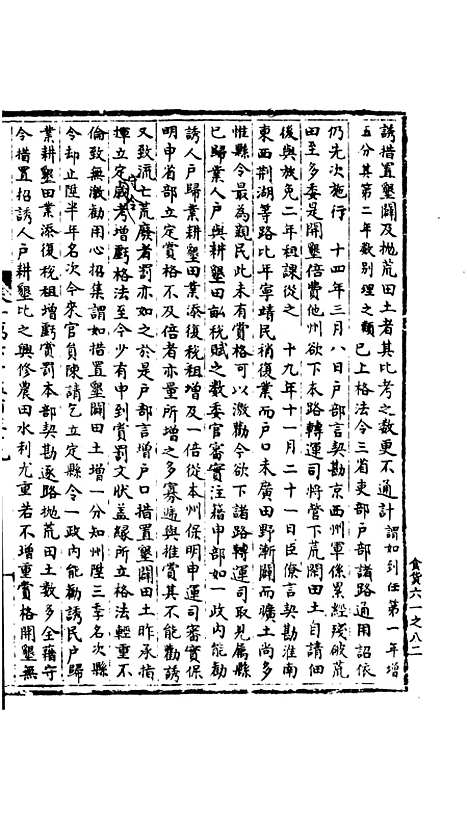 食貨六一之八二
誘措置墾闢及抛荒田土者其比考之數更不通計謂如到任第一年增
五分其第二年數别理之類已上格法令三省吏部户部諸路通用詔依
仍先次施行　十四年三月八日户部言契勘京西州軍係累經殘破荒
田至多委是開墾倍費他州欲下本路轉運司將管下荒閑田土自請佃
後與放免二年租課從之　十九年十一月二十一日臣僚言契勘淮南
東西荆湖等路比年寧靖民稍復業而户口未廣田野漸闢而曠土尚多
惟縣令最為親民此未有賞格可以激勸今欲下諸路轉運司取見屬縣
已歸業人户與耕墾田畝税賦之數委官審實注籍申部如一政内能勸
誘人户歸業耕墾田業添復税租增及一倍從本州保明申運司審實保
明申省部立定賞格不及倍者亦量所增之多寡遞與推賞其不能勸誘
又致流亡荒廢者罰亦如之於是户部言增户口措置墾闢田土昨承指
揮立定歲考增虧格法至今少有申到賞罰文狀蓋緣所立格法輕重不
倫致無激勸用心招集謂如措置墾闢田土增一分知州陞三季名次縣
令却止陞半年名次今來官員陳請乞立定縣令一政内能勸誘民户歸
業耕墾田業添復税租增虧賞罰本部契勘逐路抛荒田土數多全藉守
令措置招誘人户耕墾比之興修農田水利尤重若不增重賞格開墾無